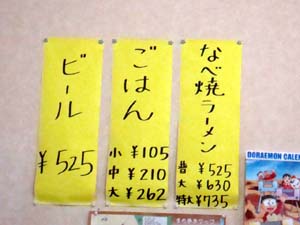 なべ焼ラーメン
普 ¥525
大 ¥630
特大 ¥735
ごはん
小 ¥105
中 ¥210
大 ¥262
ビール
¥525
DORAEMON CALEN